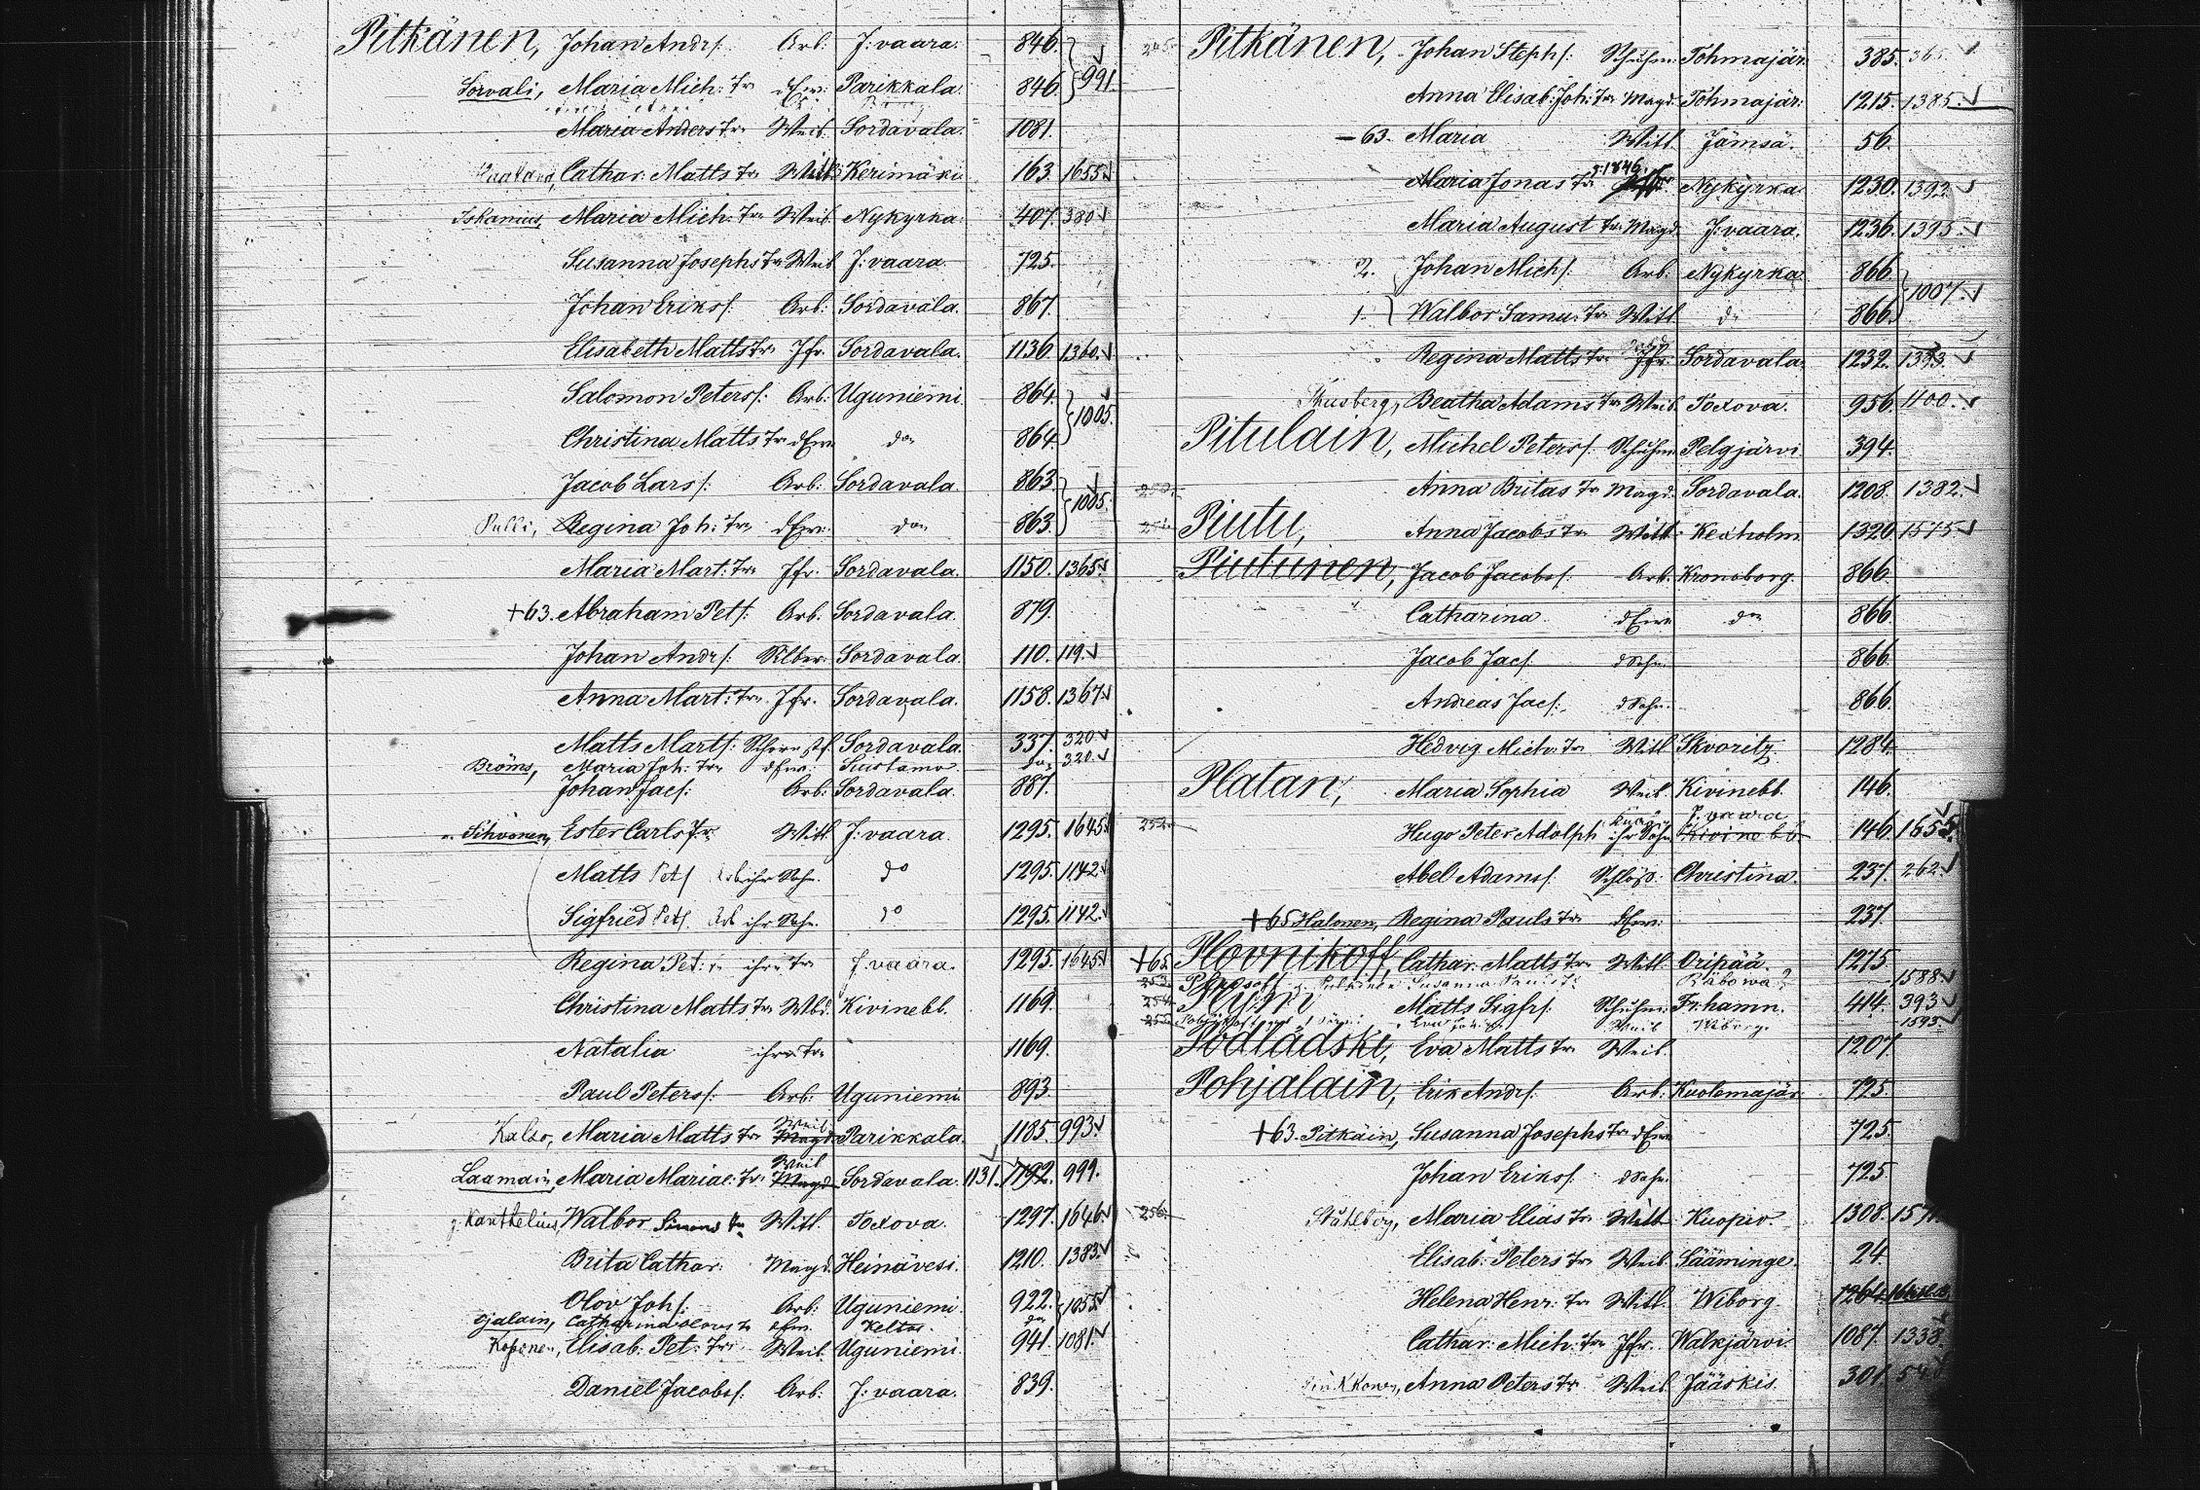 Pitkänen, Johan Andrs/: Arb: J:vaara. 846. 991
Sorvali, Maria Mich: Tr. dErw: Parikkala. 846.
Maria Anders Tr. Weib. Sordavala. 1081.
Cathar: Matts Tr. Witt: Kerimäki 163 1655
Iskanius, Maria Mich: Tr. Weib. Nykyrka. 407. 380
Susanna Josephs Tr. Weib J:vaara 725.
Johan Eriks/: Arb: Sordavala. 867.
Elisabeth Matts Tr. Jfr. Sordavala. 1136 1360.
Salomon Peters/: Arb: Uguniemi. 864. 1005.
Christina Matts Tr. dErw do 864.
Jacob Lars/: Arb: Sordavala. 863 1005.
Pulli, Regina Joh: Tr. dErw: do 863.
Maria Mart: Tr. Jfr. Sordavala. 1150. 1365.
+63. Abraham Pet/: Arb. Sordavala. 879.
Johan Andrs/: Sordavala. 110. 119.
Anna Mart: Tr. Jfr. Sordavala. 1158. 1367
Matts Marts/: Sordavala. 337. 320
Bröms, Maria Joh: Tr. dErw: Suistamo. do 320.
Johan Jacs/: Arb: Sordavala. 887.
Sihvonen, Ester Carls Tr. Witt. J:vaara. 1295. 1645
Matts Pets/ ihr Sohn. do 1295. 1142
Sigfried Pets/. Arb ihr Sohn. do 1295. 1142
Regina Pet: Tr ihre Tr J:vaara. 1295. 1645
Christina Matts Tr. Wbd. Kivinebb. 1169.
Natalia ihre Tr. 1169.
Paul Peters/: Arb: Uguniemi. 893.
Kalso, Maria Matts Tr. Weib Magd Parikkala. 1185. 993
Laamain, Maria Mariae: Tr. Weib Magd Sordavala. 1131. 1192. 999.
Kanthelius, Walbor Simons Tr. Witt. Toxova. 1297. 1646
Brita Cathar: Magd. Heinävesi. 1210. 1383.
Olov Joh/: Arb: Uguniemi. 922. 1055
Catharina Olovs Tr dErw. Keltos. do
Koponen, Elisab: Pet: Tr. Weib. Uguniemi. 941. 1081
Daniel Jacobs/. Arb: J:vaara. 839.
245. Pitkänen, Johan Stephs/: Schuhm: Tohmajär. 385. 365
Anna Elisab: Joh: Tr. Magd. Tohmajär: 1215. 1385.
-63. Maria Witt. Jämsä. 56.
Maria Jonas Tr. g. 1846. Nykyrka 1230. 1392
Maria August Tr. Magd. J:vaara. 1236. 1395.
2. Johan Michs/: Arb: Nykyrka 866. 1007.
1. Walbor Samu: Tr. Witt do 866.
Regina Matts Tr. Jfr. Sordavala. 1232. 1393.
Beatha Adams Tr. Weib. Toxova. 956. 1100.
Pitulain, Michel Peters/: Schuhm Pelgjärvi 394.
Anna Britas Tr. Magd. Sordavala. 1208. 1382.
Piutu, Anna Jacobs Tr. Witt. Kexholm 1320 1575
Piutunen, Jacob Jacobs/: Arb. Kronoborg. 866.
Catharina dErw do 866.
Jacob Jacs/ dSohn. 866.
Andreas Jacs/: dSohn. 866.
Hedvig Mich: Tr. Witt Skvoritz. 1284.
Platan, Maria Sophia Weib. Kivinebb. 146.
252. Hugo Peter Adolph ihr Sohn J:vaara Kivinebb. 146. 1655.
Abel Adams/: Schloß: Christina. 237. 262
+65 Halonen, Regina Pauls Tr. dErw: 237
+65. Plovnikoff, Cathar: Matts Tr. Witt. Oripää. 1275
Susanna Räbowa? 1588
254. Matts Sigfrs/: Schuhm: Fr:hamn. 414. 393
255. Weib Wiborg. 1593
Podladski, Eva Matts Tr. Weib. 1207
Pohjalain, Erik Andrs/: Arb: Kuolemajär. 725.
+63. Pitkäin, Susanna Josephs Tr. dErw 725
Johan Eriks/. dSohn. 725
256. Stahlberg, Maria Elias Tr. Witt Kuopio. 1308. 157
Elisab: Peters Tr. Weib. Sääminge. 24
Helena Henr: Tr. Witt. Wiborg. 1264.
Cathar: Mich: Tr. Jfr. Walkjärvi 1087. 1338
Anna Peters Tr. Weib. Jääskis. 301. 54